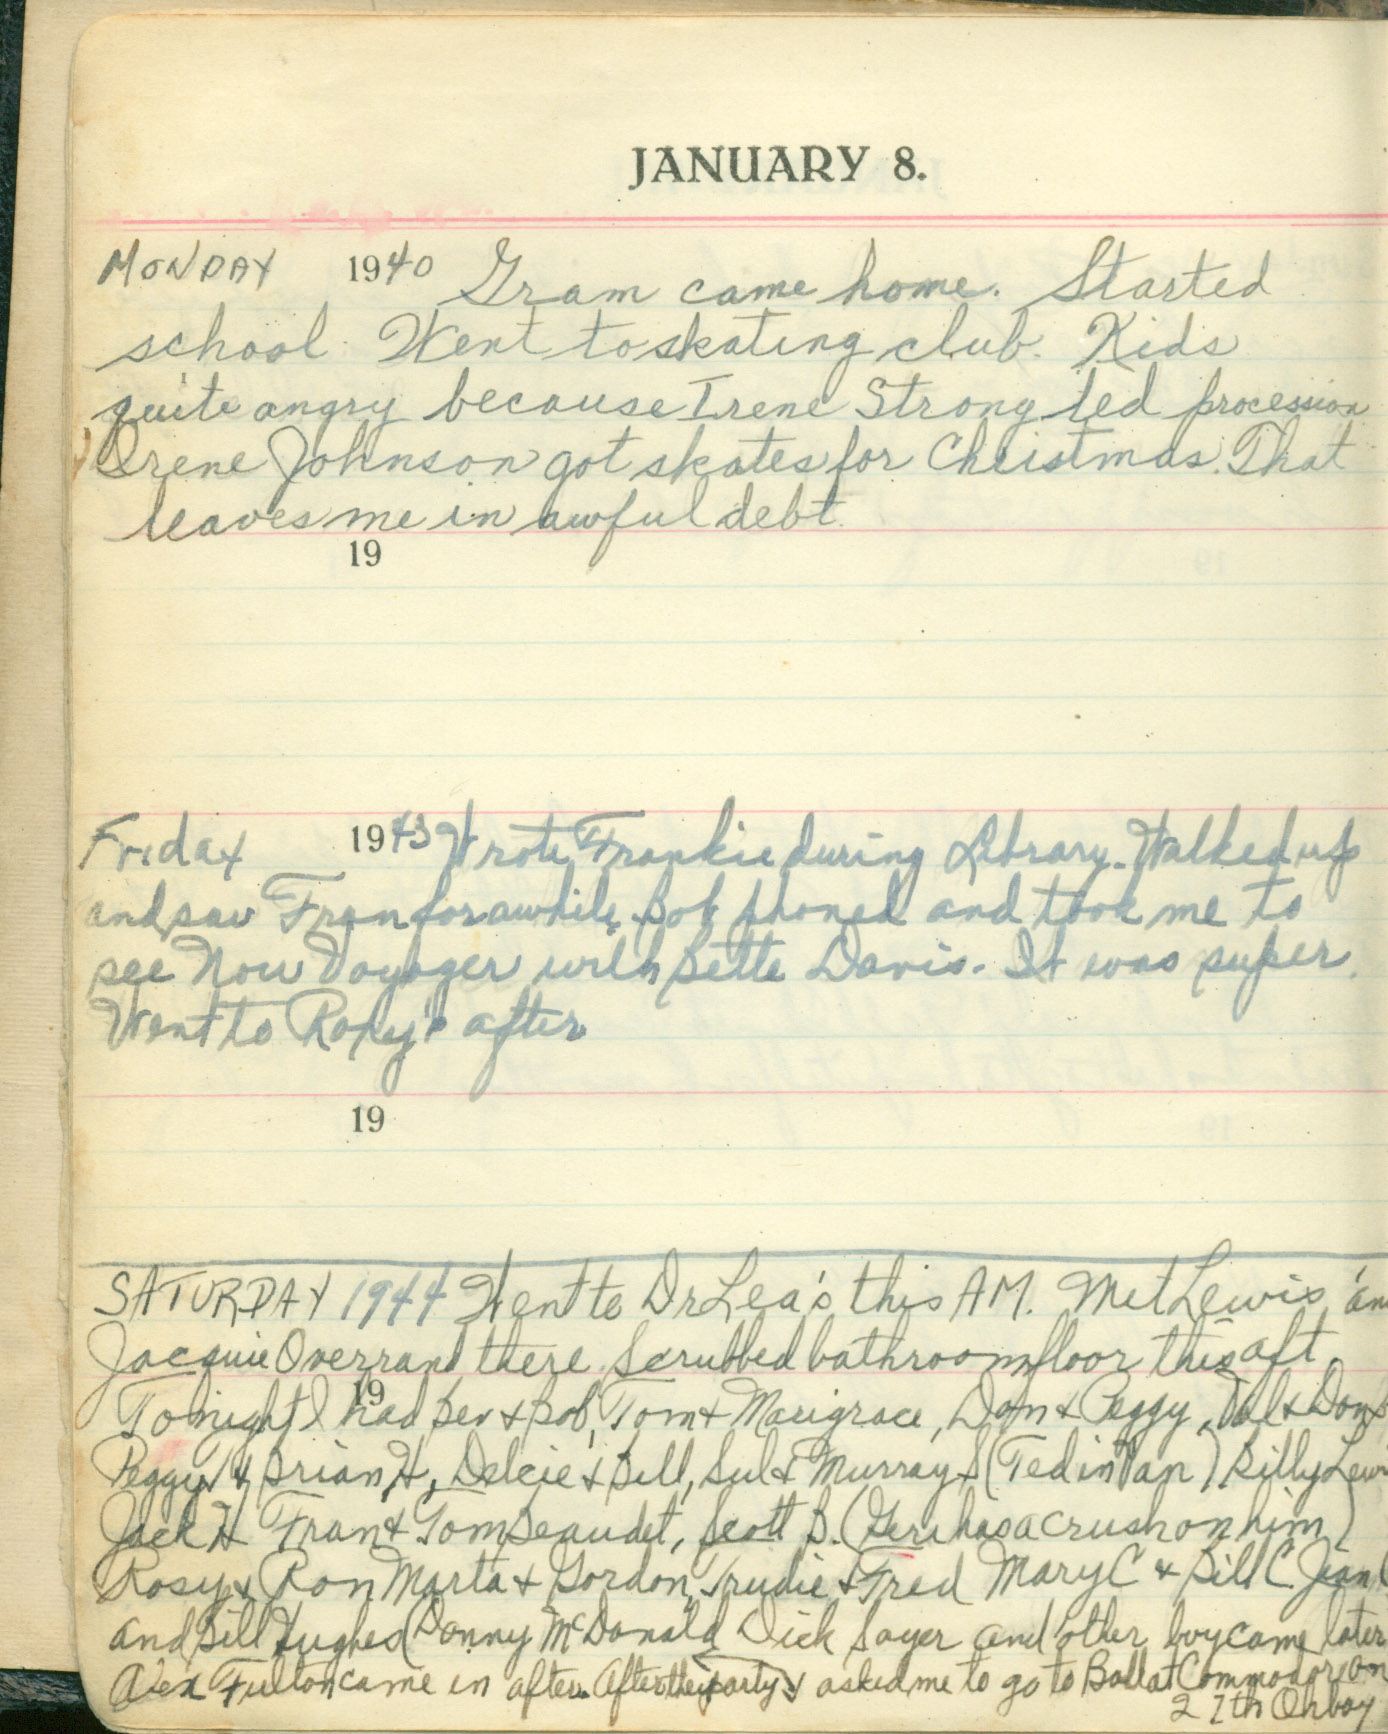 JANUARY 8.
MONDAY 1940 Gram came home. Started
school. Went to skating club. Kids
quite angry because Irene Strong led procession
Irene Johnson got skates for Christmas. That
leaves me in awful debt.
19
Friday 1943 Wrote Frankie during Library. Walked up
and saw Fran for awhile. Bob phoned and took me to
see Now Voyager with Bette Davis. It was super.
Went to Roxy's after
19
SATURDAY 1944 Went to Dr Lea's this AM. Met Lewis an
Jacquie Overrand there. Scrubbed bathroom floor this aft.
19
Tonight I had Bev & Bob, Tom & Marigrace, Don & Peggy, Val & Don
Peggy & Brian H, Delcie & Bill, Sul & Murray S (Ted in Van) Billy Lewi
Jack H Fran & Tom Beaudet, Scott B. (Geri has a crush on him)
Rosy & Ron Marta & Gordon, Trudie & Fred Mary C & Bill C Jean
and Bill Hughes (Donny McDonald Dick Sayer and other boy came later
Alex Fulton came in after. After the party asked me to go to Ball at Commodore on
27th Oh boy